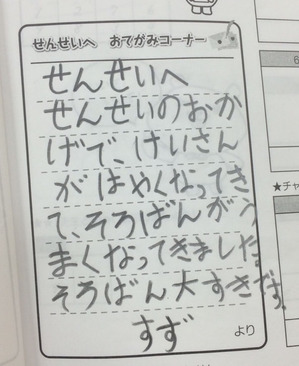 せんせいへ おてがみコーナー
せんせいへ
せんせいのおか
げで、けいさん
がはやくなってき
て、そろばんがう
まくなってきました。
そろばん大すきです。
すず より
6
★チャ